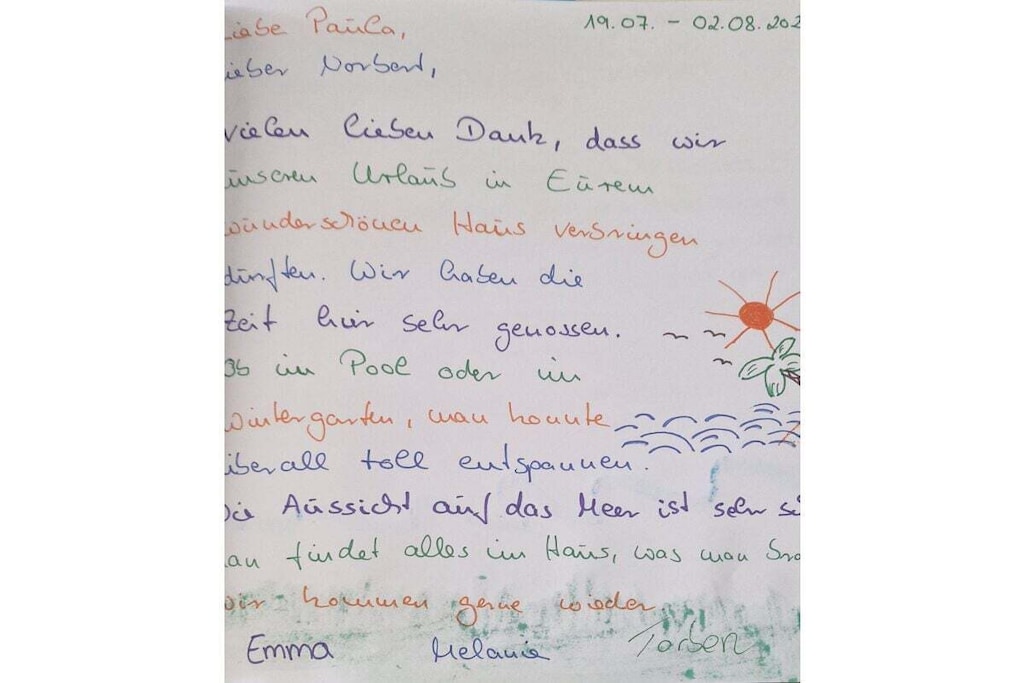 Liebe Paula,
19.07. - 02.08.202
Lieber Norbert,
Vielen lieben Dank, dass wir
unseren Urlaub in Eurem
wunderschönen Haus verbringen
durften. Wir haben die
Zeit hier sehr genossen.
Ob im Pool oder im
Wintergarten, man konnte
überall toll entspannen.
Die Aussicht auf das Meer ist sehr
Man findet alles im Haus, was man
Wir kommen gerne wieder
Emma Melanie Torben